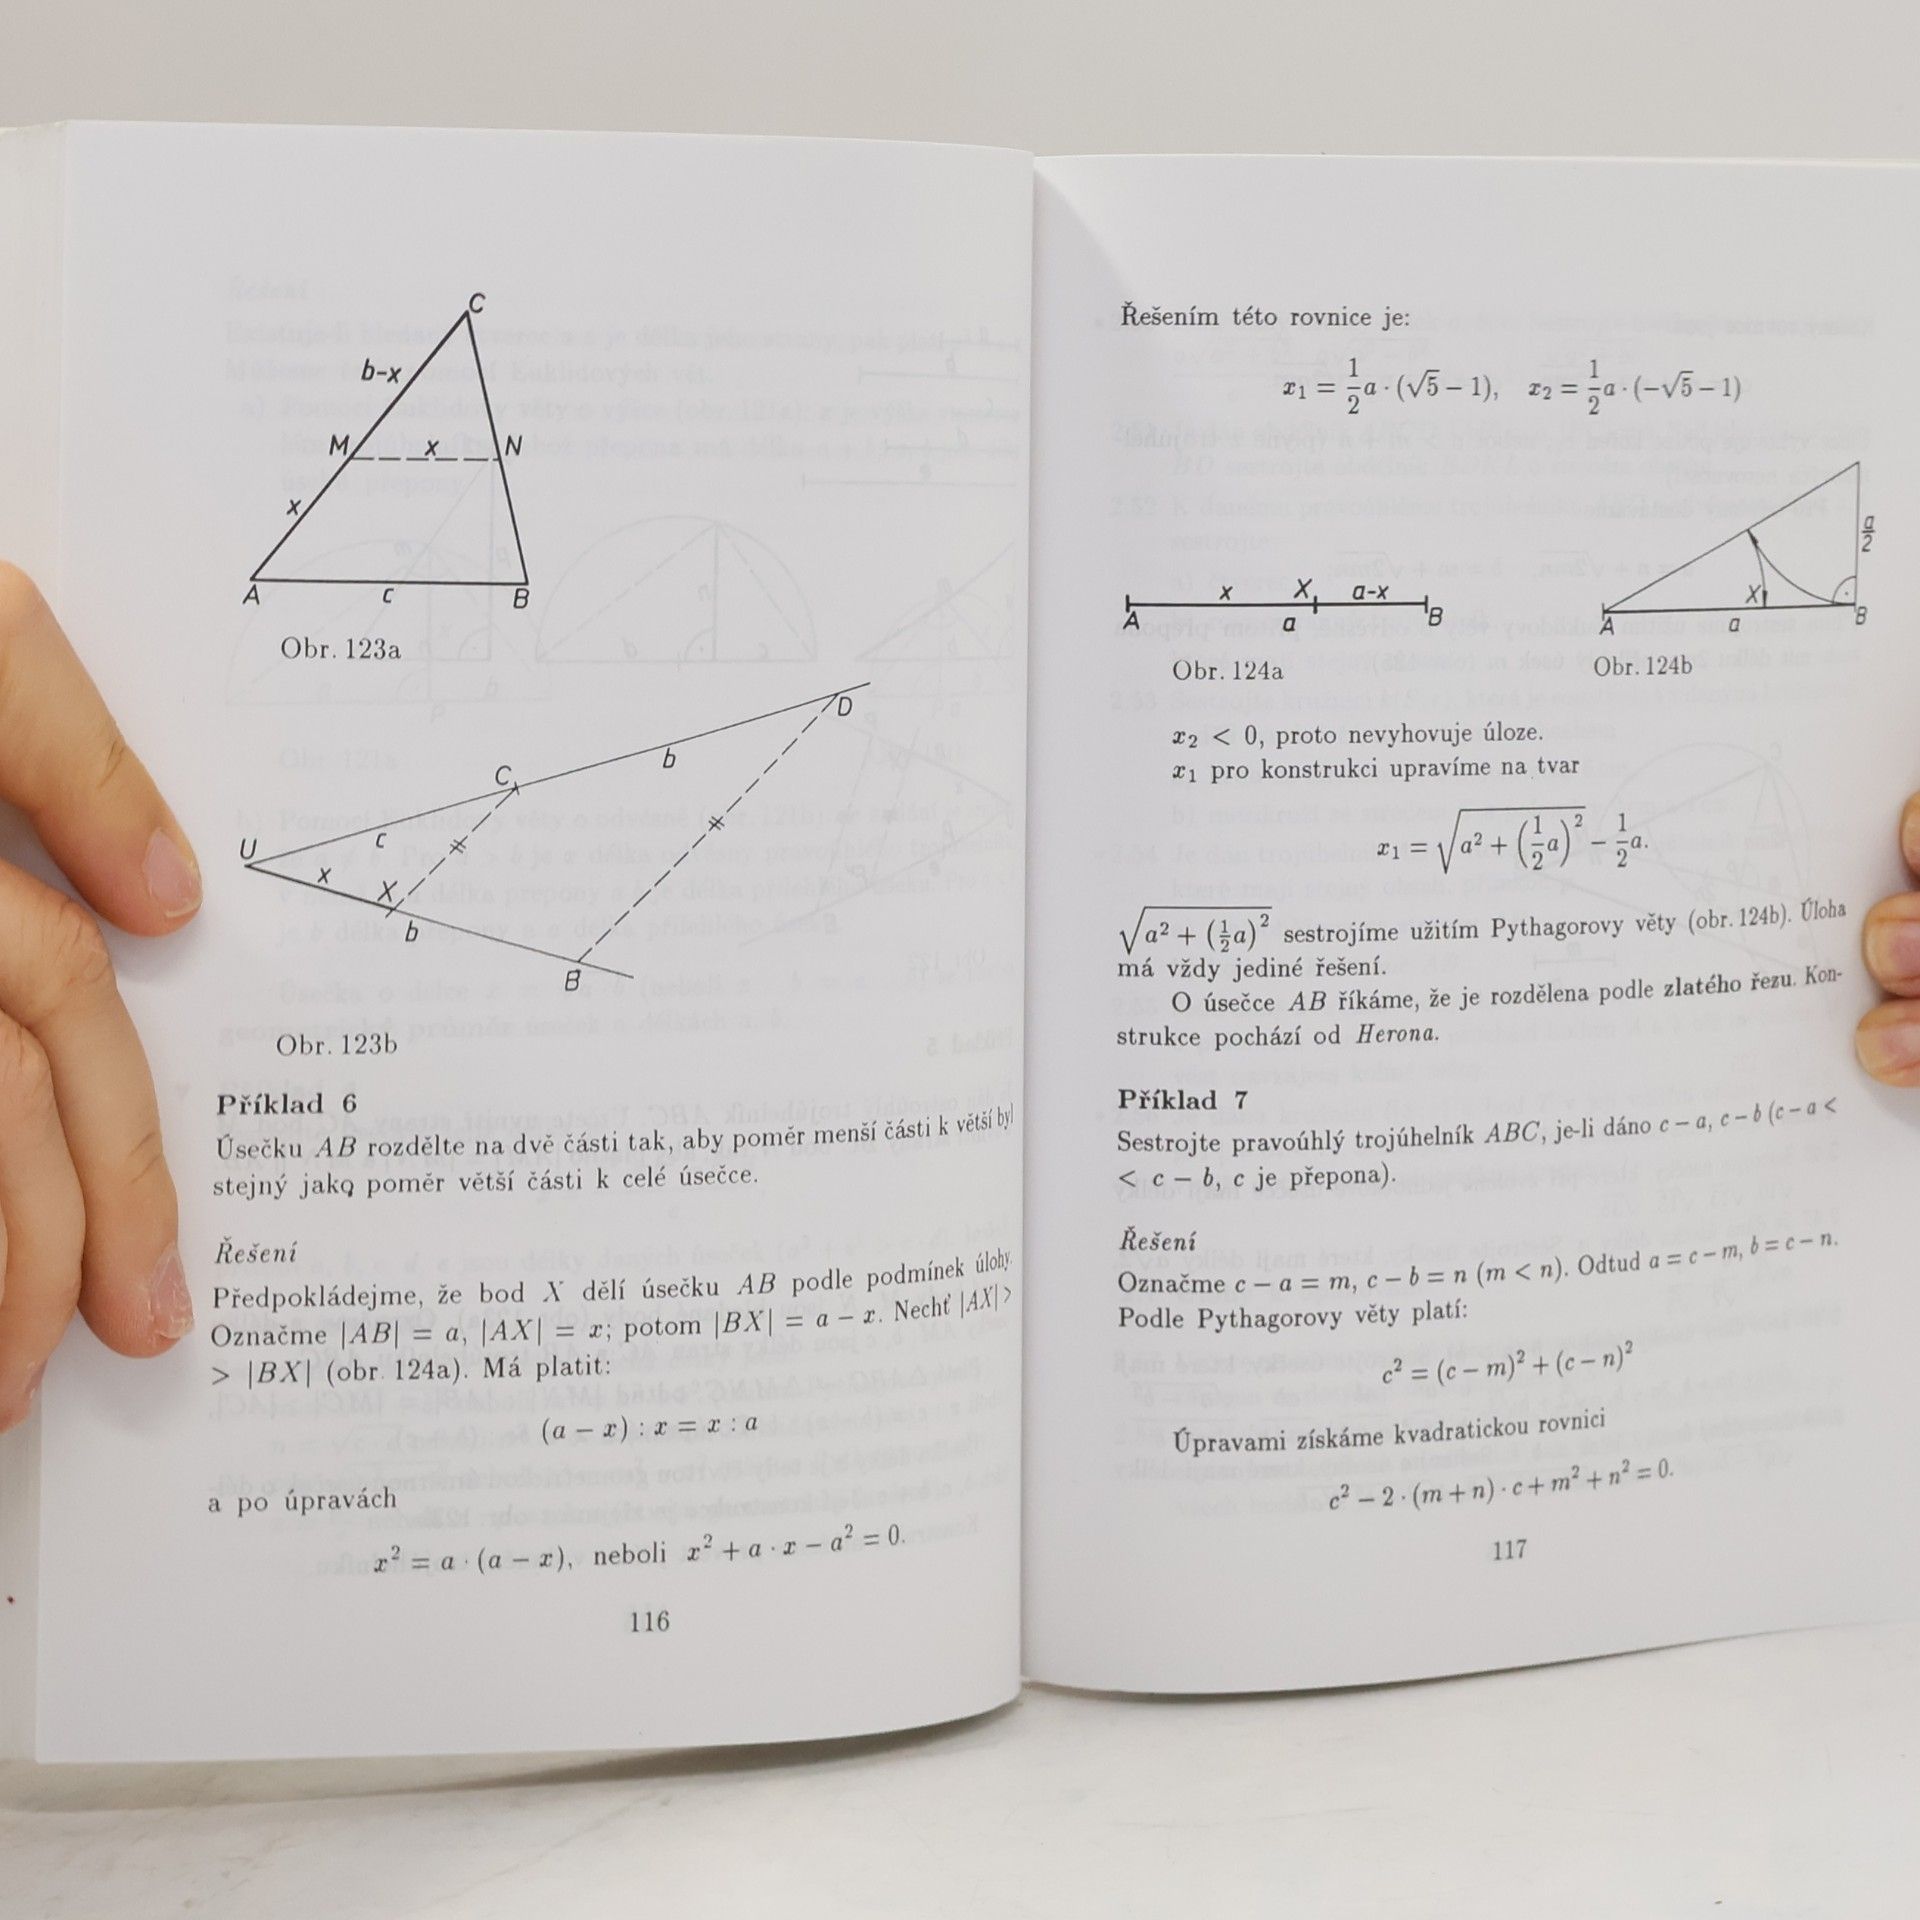 C
b-x
M x N
x
A c B
Obr. 123a
D
b
C
c
U
x X
b
B
Obr. 123b
Příklad 6
Úsečku AB rozdělte na dvě části tak, aby poměr menší části k větší byl
stejný jako poměr větší části k celé úsečce.
Řešení
Předpokládejme, že bod X dělí úsečku AB podle podmínek úlohy.
Označme |AB| = a, |AX| = x; potom |BX| = a − x. Nechť |AX| >
> |BX| (obr. 124a). Má platit:
(a − x) : x = x : a
a po úpravách
x² = a · (a − x), neboli x² + a · x − a² = 0.
116
Řešením této rovnice je:
x₁ = 1/2 a · (√5 − 1), x₂ = 1/2 a · (−√5 − 1)
x X a-x
A a B
Obr. 124a
a/2
X
A a B
Obr. 124b
x₂ < 0, proto nevyhovuje úloze.
x₁ pro konstrukci upravíme na tvar
x₁ = √(a² + (1/2 a)²) − 1/2 a.
√(a² + (1/2 a)²) sestrojíme užitím Pythagorovy věty (obr. 124b). Úloha
má vždy jediné řešení.
O úsečce AB říkáme, že je rozdělena podle zlatého řezu. Kon-
strukce pochází od Herona.
Příklad 7
Sestrojte pravoúhlý trojúhelník ABC, je-li dáno c − a, c − b (c − a <
< c − b, c je přepona).
Řešení
Označme c − a = m, c − b = n (m < n). Odtud a = c − m, b = c − n.
Podle Pythagorovy věty platí:
c² = (c − m)² + (c − n)²
Úpravami získáme kvadratickou rovnici
c² − 2 · (m + n) · c + m² + n² = 0.
117